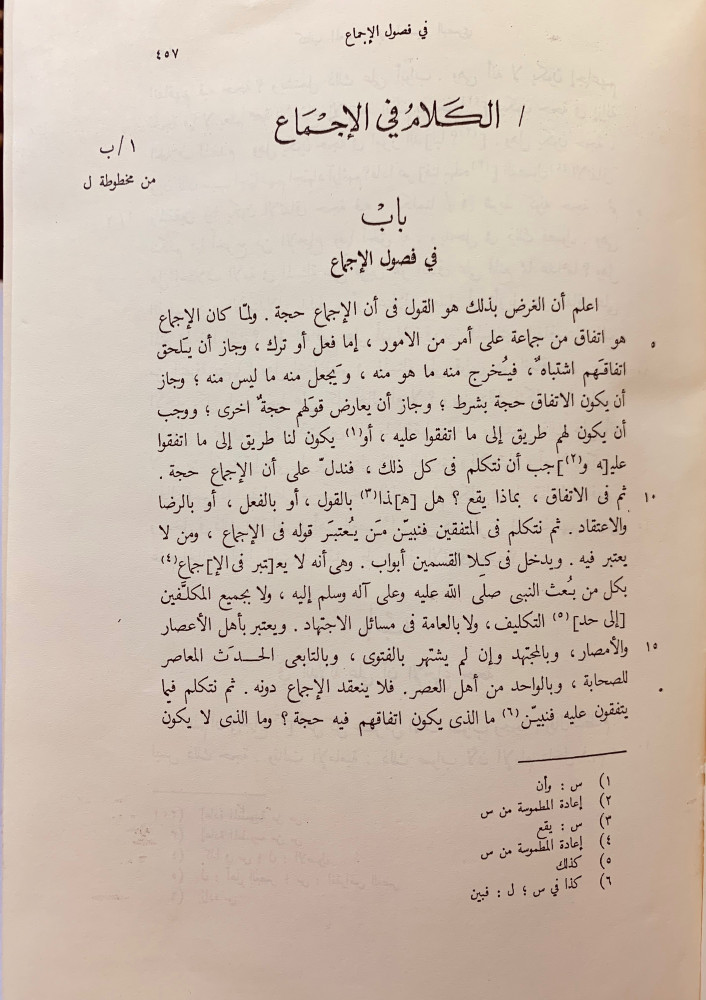 في فصول الإجماع
٤٥٧
/ الكَلَامُ في الإجْمَاع
١/ب
من مخطوطة ل
بابْ
في فصول الإجماع
اعلم أن الغرض بذلك هو القول فى أن الإجماع حجة . ولمّا كان الإجماع
٥ هو اتفاق من جماعة على أمر من الامور ، إما فعل أو ترك ، وجاز أن يَلحق
اتفاقَهم اشتباهٌ ، فيُخرج منه ما هو منه ، ويَجعل منه ما ليس منه ؛ وجاز
أن يكون الاتفاق حجة بشرط ؛ وجاز أن يعارض قولَهم حجةٌ اخرى ؛ ووجب
أن يكون لهم طريق إلى ما اتفقوا عليه ، أو(١) يكون لنا طريق إلى ما اتفقوا
عليـ[ـه و(٢)]جب أن نتكلم فى كل ذلك ، فندلّ على أن الإجماع حجة .
١٠ ثم فى الاتفاق ، بماذا يقع ؟ هل [هـ]ـذا(٣) بالقول ، أو بالفعل ، أو بالرضا
والاعتقاد . ثم نتكلم فى المتفقين فنبيّن مَن يُعتبَر قوله فى الإجماع ، ومن لا
يعتبر فيه . ويدخل فى كلا القسمين أبواب . وهى أنه لا يعـ[ـتبر فى الإ]جماع(٤)
بكل من بُعث النبى صلّى الله عليه وعلى آله وسلم إليه ، ولا بجميع المكلَّفين
[إلى حد](٥) التكليف ، ولا بالعامة فى مسائل الاجتهاد . ويعتبر بأهل الأعصار
١٥ والأمصار ، وبالمجتهد وإن لم يشتهر بالفتوى ، وبالتابعى الحدَث المعاصر
للصحابة ، وبالواحد من أهل العصر . فلا ينعقد الإجماع دونه . ثم نتكلم فيما
يتفقون عليه فنبيّن(٦) ما الذى يكون اتفاقهم فيه حجة ؟ وما الذى لا يكون
١) س : وأن
٢) إعادة المطموسة من س
٣) س : يقع
٤) إعادة المطموسة من س
٥) كذلك
٦) كذا في س ؛ ل : فبين